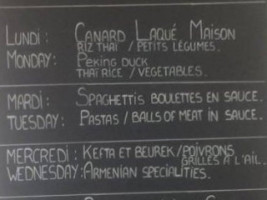 LUNDI : CANARD LAQUÉ MAISON
RIZ THAI / PETITS LÉGUMES.
MONDAY: PEKING DUCK
THAI RICE / VEGETABLES.
MARDI : SPAGHETTIS BOULETTES EN SAUCE.
TUESDAY: PASTAS / BALLS OF MEAT IN SAUCE.
MERCREDI : KEFTA ET BEUREK / POIVRONS
GRILLÉS À L'AIL.
WEDNESDAY: ARMENIAN SPECIALITIES.